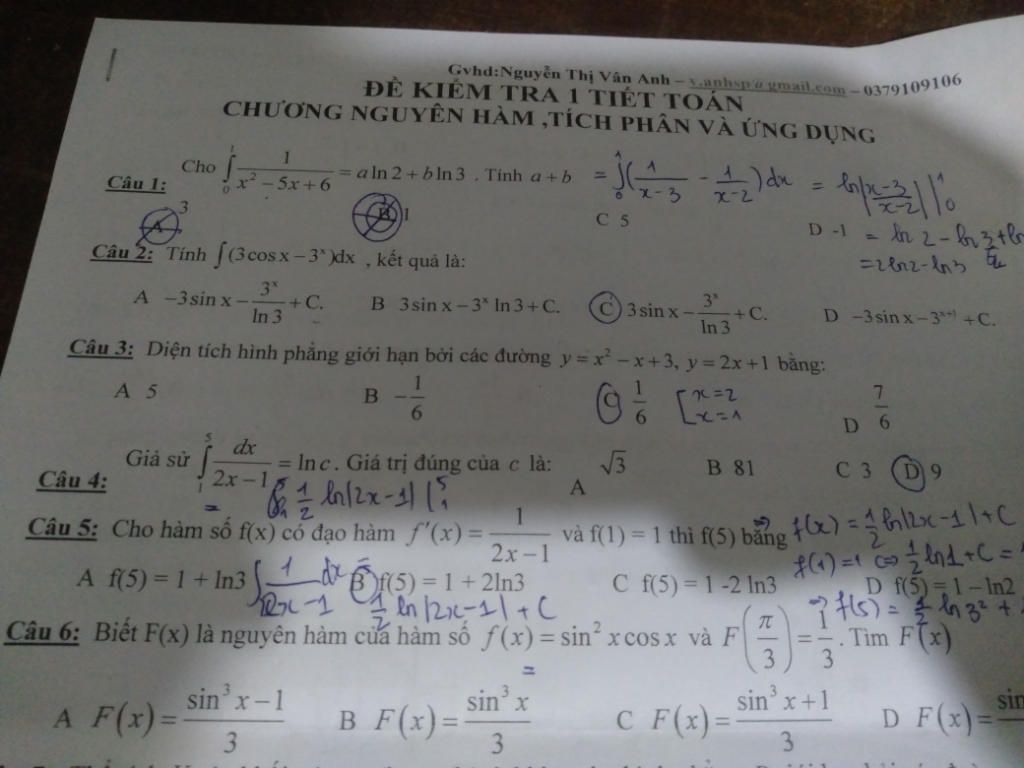 Gvhd:Nguyễn Thị Vân Anh – v.anhsp@gmail.com – 0379109106
ĐỀ KIỂM TRA 1 TIẾT TOÁN
CHƯƠNG NGUYÊN HÀM ,TÍCH PHÂN VÀ ỨNG DỤNG
Câu 1: Cho ∫₀¹ 1/(x² − 5x + 6) = a ln 2 + b ln 3 . Tính a + b = ∫₀¹ (1/(x−3) − 1/(x−2)) dx = ln|(x−3)/(x−2)| |₀¹
A 3 B 1 C 5 D -1 = ln 2 − ln 3/2
= 2ln2 − ln3
Câu 2: Tính ∫(3cos x − 3ˣ)dx , kết quả là:
A −3sin x − 3ˣ/ln 3 + C. B 3sin x − 3ˣ ln 3 + C. C 3sin x − 3ˣ/ln 3 + C. D −3sin x − 3ˣ⁺¹ + C.
Câu 3: Diện tích hình phẳng giới hạn bởi các đường y = x² − x + 3, y = 2x + 1 bằng:
A 5 B −1/6 C 1/6 [x=2 x=1 D 7/6
Câu 4: Giả sử ∫₁⁵ dx/(2x − 1) = ln c . Giá trị đúng của c là: A √3 B 81 C 3 D 9
= 1/2 ln|2x−1| |₁⁵
Câu 5: Cho hàm số f(x) có đạo hàm f′(x) = 1/(2x − 1) và f(1) = 1 thì f(5) bằng ⇒ f(x) = 1/2 ln|2x−1| + C
f(1)=1 ⇔ 1/2 ln1 + C =
A f(5) = 1 + ln3 ∫ 1/(2x−1) dx B f(5) = 1 + 2ln3 C f(5) = 1 -2 ln3 D f(5) = 1 – ln2
1/2 ln|2x−1| + C ⇒ f(5) = 1/2 ln 3² +
Câu 6: Biết F(x) là nguyên hàm của hàm số f(x) = sin² x cos x và F(π/3) = 1/3 . Tìm F(x)
=
A F(x) = (sin³ x − 1)/3 B F(x) = sin³ x/3 C F(x) = (sin³ x + 1)/3 D F(x) =